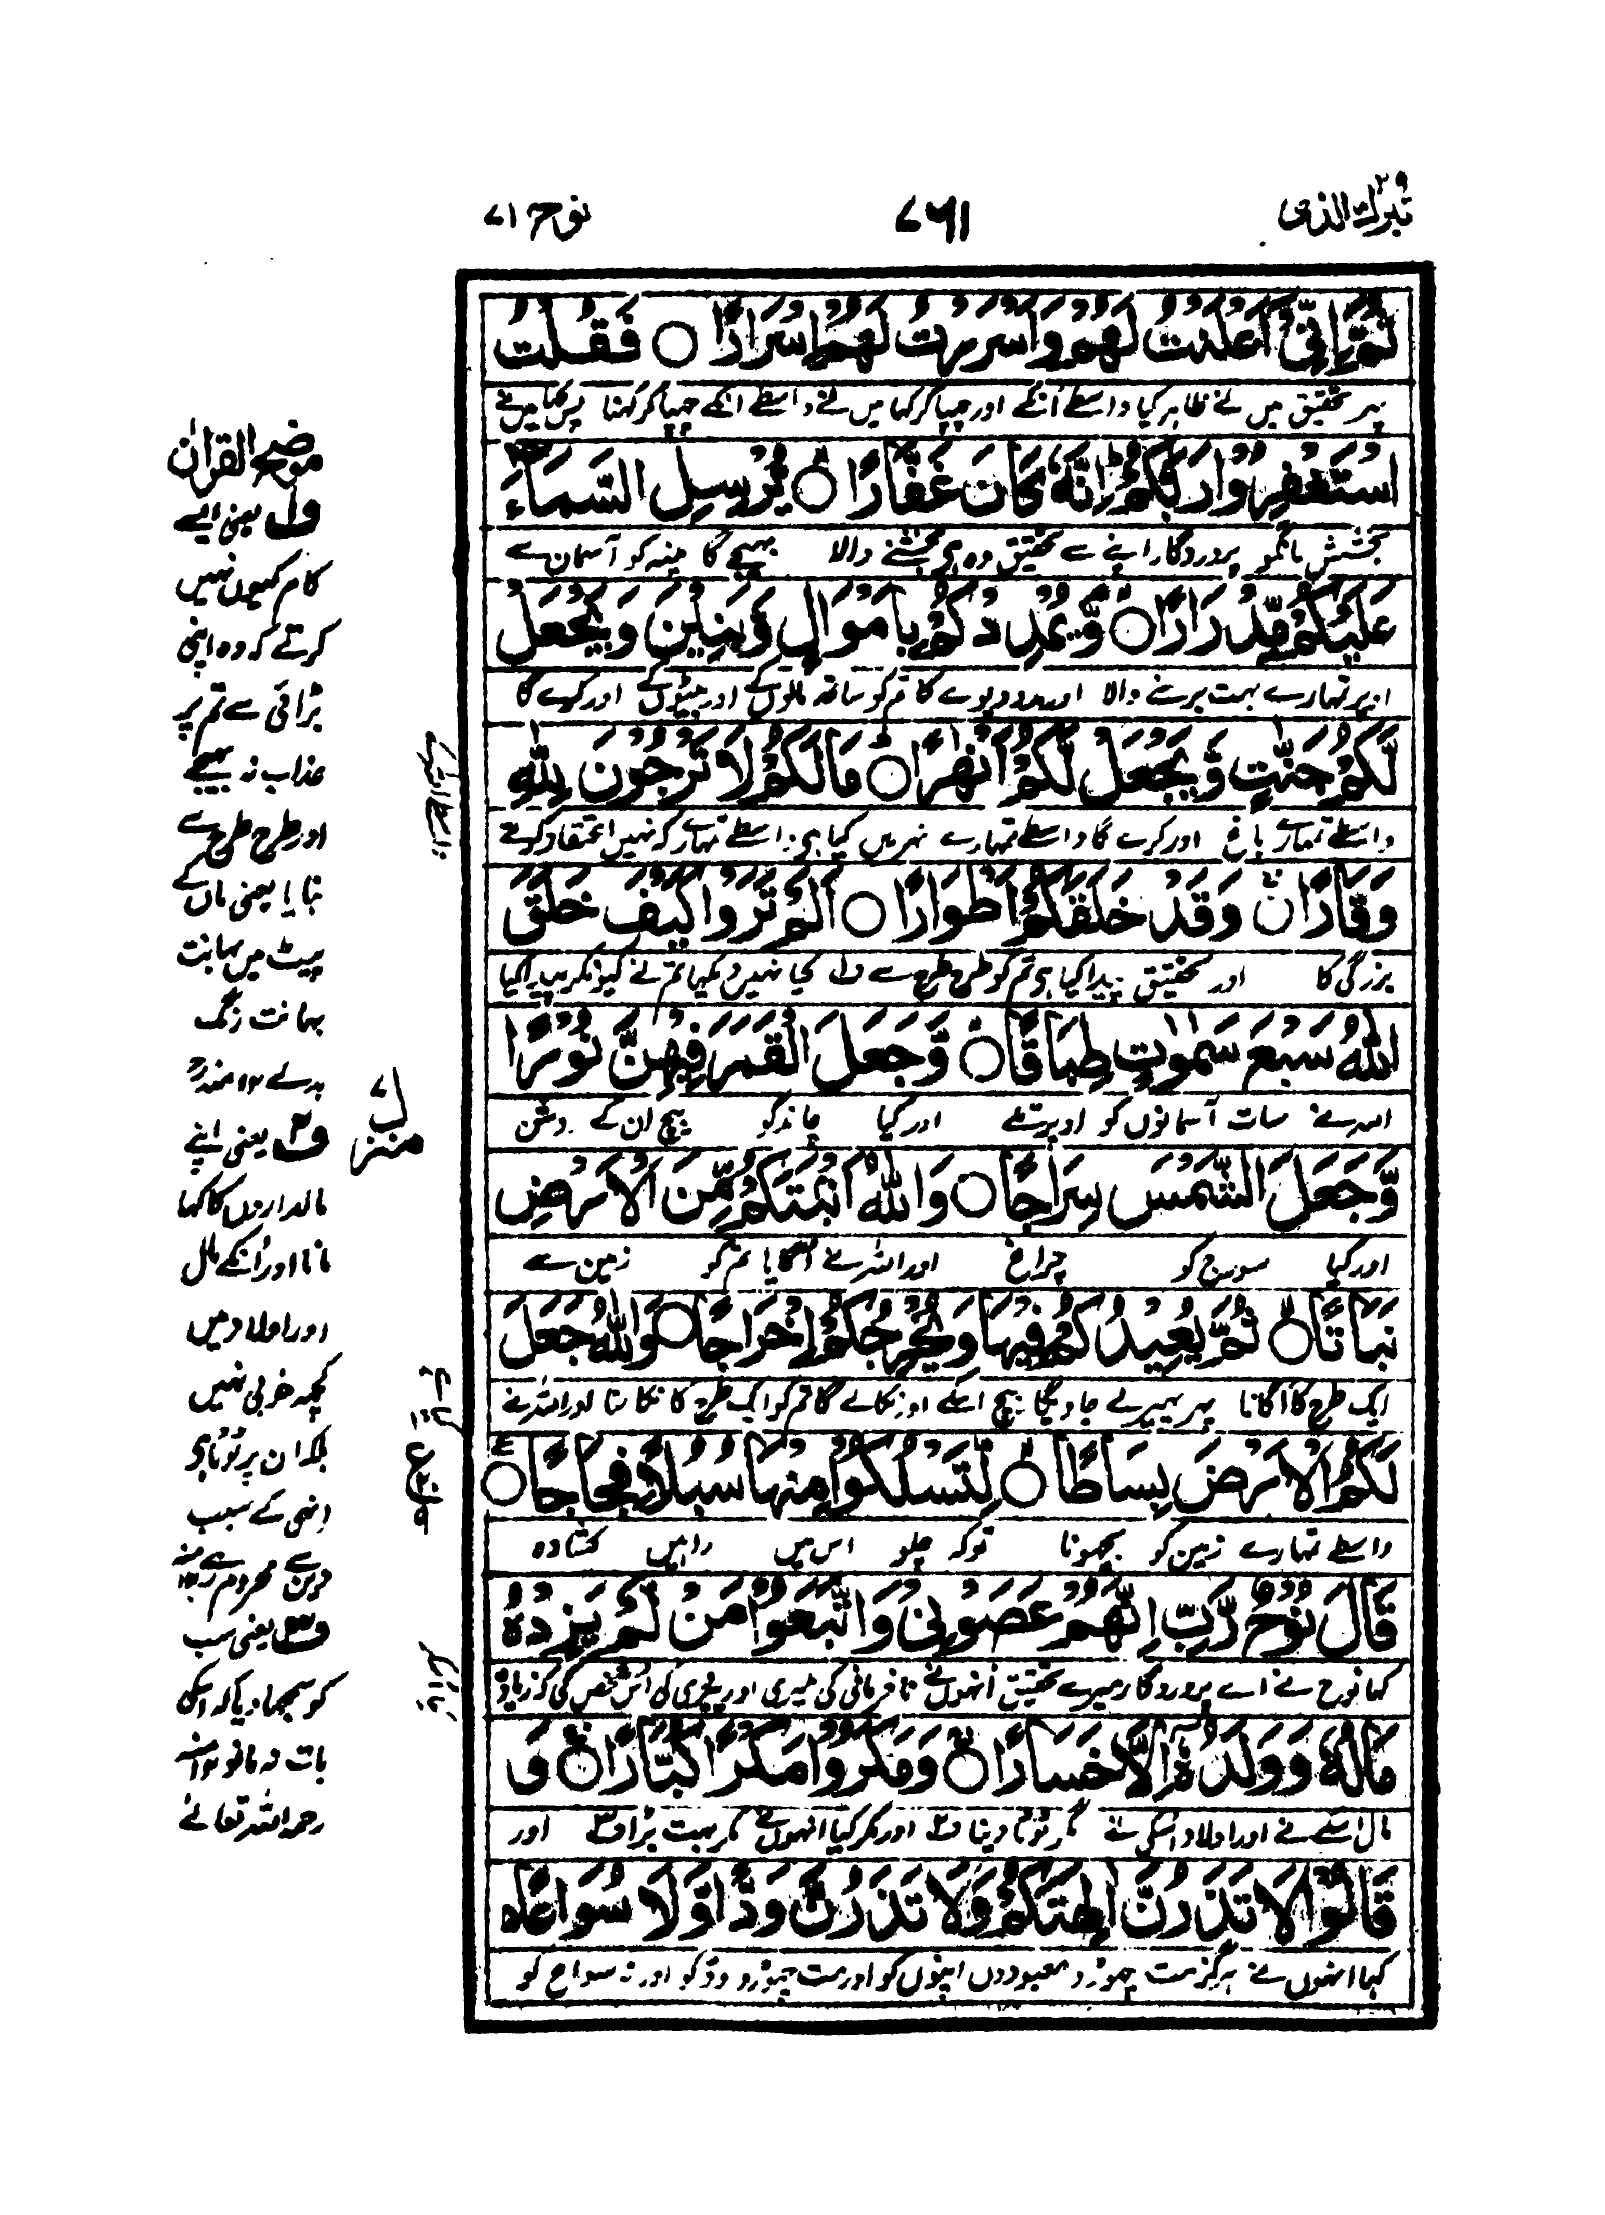 تبرك الذی ۲۹
۷۶۱
نوح ۷۱
ثُمَّ اِنِّیْۤ اَعْلَنْتُ لَهُمْ وَاَسْرَرْتُ لَهُمْ اِسْرَارًا ○ فَقُلْتُ
پھر تحقیق میں نے ظاہر کیا واسطے اُنکے اور چھپا کر کہا میں نے واسطے انکے چھپا کر کہنا پس کہا مینے
اسْتَغْفِرُوْا رَبَّكُمْ اِنَّهٗ كَانَ غَفَّارًا ○ یُّرْسِلِ السَّمَآءَ
بخشش مانگو پروردگار اپنے سے تحقیق وہ ہی بخشنے والا بھیجے گا مینہ کو آسمان سے
عَلَیْكُمْ مِّدْرَارًا ○ وَّیُمْدِدْكُمْ بِاَمْوَالٍ وَّبَنِیْنَ وَیَجْعَلْ
اوپر تمہارے بہت برسنے والا اور مدد دیوے گا تم کو ساتھ مالوں کے اور بیٹوں کے اور کرے گا
لَّكُمْ جَنّٰتٍ وَّیَجْعَلْ لَّكُمْ اَنْهٰرًا ○ مَا لَكُمْ لَا تَرْجُوْنَ لِلّٰهِ
واسطے تمہارے باغ اور کرے گا واسطے تمہارے نہریں کیا ہی واسطے تمہارے کہ نہیں اعتقاد کرتے
وَقَارًا ○ وَقَدْ خَلَقَكُمْ اَطْوَارًا ○ اَلَمْ تَرَوْا كَیْفَ خَلَقَ
بزرگی کا اور تحقیق پیدا کیا ہی تم کو طرح طرح سے ف۱ کیا نہیں دیکھا تم نے کیونکر پیدا کیا
اللّٰهُ سَبْعَ سَمٰوٰتٍ طِبَاقًا ○ وَّجَعَلَ الْقَمَرَ فِیْهِنَّ نُوْرًا
اللہ نے سات آسمانوں کو اوپر تلے اور کیا چاند کو بیچ ان کے روشن
وَّجَعَلَ الشَّمْسَ سِرَاجًا ○ وَاللّٰهُ اَنْۢبَتَكُمْ مِّنَ الْاَرْضِ
اور کیا سورج کو چراغ اور اللہ نے اُگایا تم کو زمین سے
نَبَاتًا ○ ثُمَّ یُعِیْدُكُمْ فِیْهَا وَیُخْرِجُكُمْ اِخْرَاجًا ○ وَاللّٰهُ جَعَلَ
ایک طرح کا اُگانا پھر پھیرے جاویگا بیچ اسکے اور نکالے گا تم کو ایک طرح کا نکالنا اور اللہ نے
لَكُمُ الْاَرْضَ بِسَاطًا ○ لِّتَسْلُكُوْا مِنْهَا سُبُلًا فِجَاجًا ○
واسطے تمہارے زمین کو بچھونا توکہ چلو اس میں راہیں کشادہ
قَالَ نُوْحٌ رَّبِّ اِنَّهُمْ عَصَوْنِیْ وَاتَّبَعُوْا مَنْ لَّمْ یَزِدْهُ
کہا نوح نے اے پروردگار میرے تحقیق اُنہوں نے نافرمانی کی میری اور پیروی کی اُس شخص کی کہ نہ زیادہ
مَالُهٗ وَوَلَدُهٗۤ اِلَّا خَسَارًا ○ وَمَكَرُوْا مَكْرًا كُبَّارًا ○ وَ
مال اسکے نے اور اولاد اُسکی نے مگر ٹوٹا دینا ف۲ اور مکر کیا انہوں نے مکر بہت بڑا ف۳ اور
قَالُوْا لَا تَذَرُنَّ اٰلِهَتَكُمْ وَلَا تَذَرُنَّ وَدًّا وَّلَا سُوَاعًا
کہا انہوں نے ہرگز مت چھوڑو معبودوں اپنوں کو اور مت چھوڑو ودّ کو اور نہ سواع کو
موضح القرآن
ف۱ یعنی ایسے
کام کیوں نہیں
کرتے کہ وہ اپنی
بڑائی سے تم پر
عذاب نہ بھیجے
اور طرح طرح سے
بنایا یعنی ماں کے
پیٹ میں بھانت
بھانت رنگ
بدلے ۱۲ منہ رح
ف۲ یعنی اپنے
مالداروں کا کہا
مانا اور اُنکے مال
اور اولاد میں
کچھ خوبی نہیں
بلکہ ان پر ٹوٹا ہی
انہی کے سبب
دین سے محروم رہے ۱۲ منہ
ف۳ یعنی سب
کو سمجھا دیا کہ اسکی
بات نہ مانو ۱۲ منہ
رحمہ اللہ تعالے
منزل ۷
ع